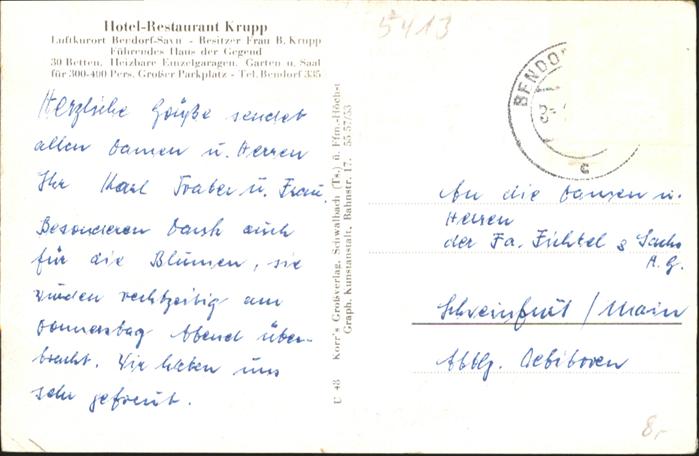 Hotel-Restaurant Krupp
Luftkurort Bendorf-Sayn - Besitzer Frau B. Krupp
Führendes Haus der Gegend
30 Betten, Heizbare Einzelgaragen, Garten u. Saal
für 300-400 Pers. Großer Parkplatz - Tel. Bendorf 335
Herzliche Grüße sendet
allen Damen u. Herren
Ihr Karl Traber u. Frau.
Besonderen Dank auch
für die Blumen, sie
wurden rechtzeitig am
Donnerstag Abend über-
bracht. Wir haben uns
sehr gefreut.
U 48 Korr's Großverlag, Schwalbach (Ts.) ü. Ffm.-Höchst
Graph. Kunstanstalt, Bahnstr. 17. 55/57/53
5413
BENDO
c
An die Damen u.
Herren
der Fa. Fichtel & Sachs
A.G.
Schweinfurt / Main
Abtlg.
8,-